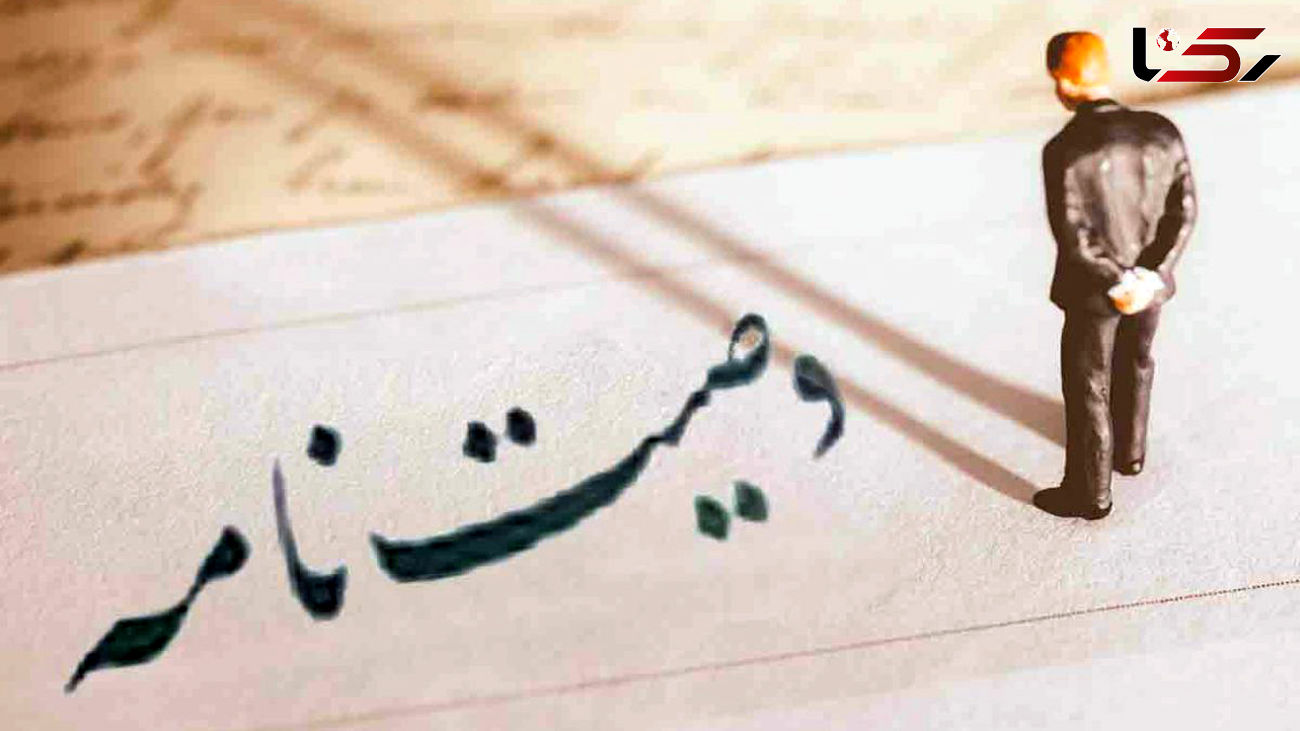 رکنا
وصیت نامه